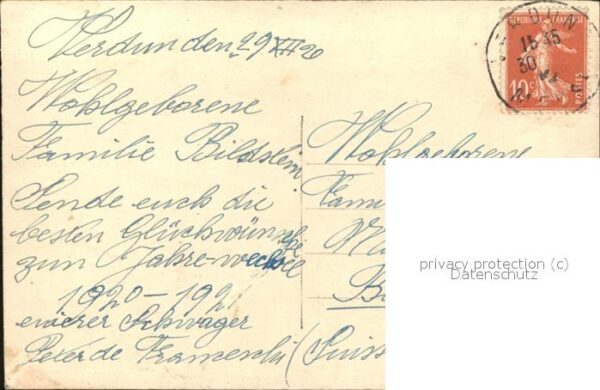 Verdun den 29 XII 20
Wohlgeborene
Familie Bildstein
Sende euch die
besten Glückwünsche
zum Jahre-wechsel
1920-192
eurer Schwager
Peter de Franceschi
Wohlgeborene
Fami
(Suisse
REPUBLIQUE FRANÇAISE
10c
POSTES
VERDUN
15 45
30
privacy protection (c)
Datenschutz